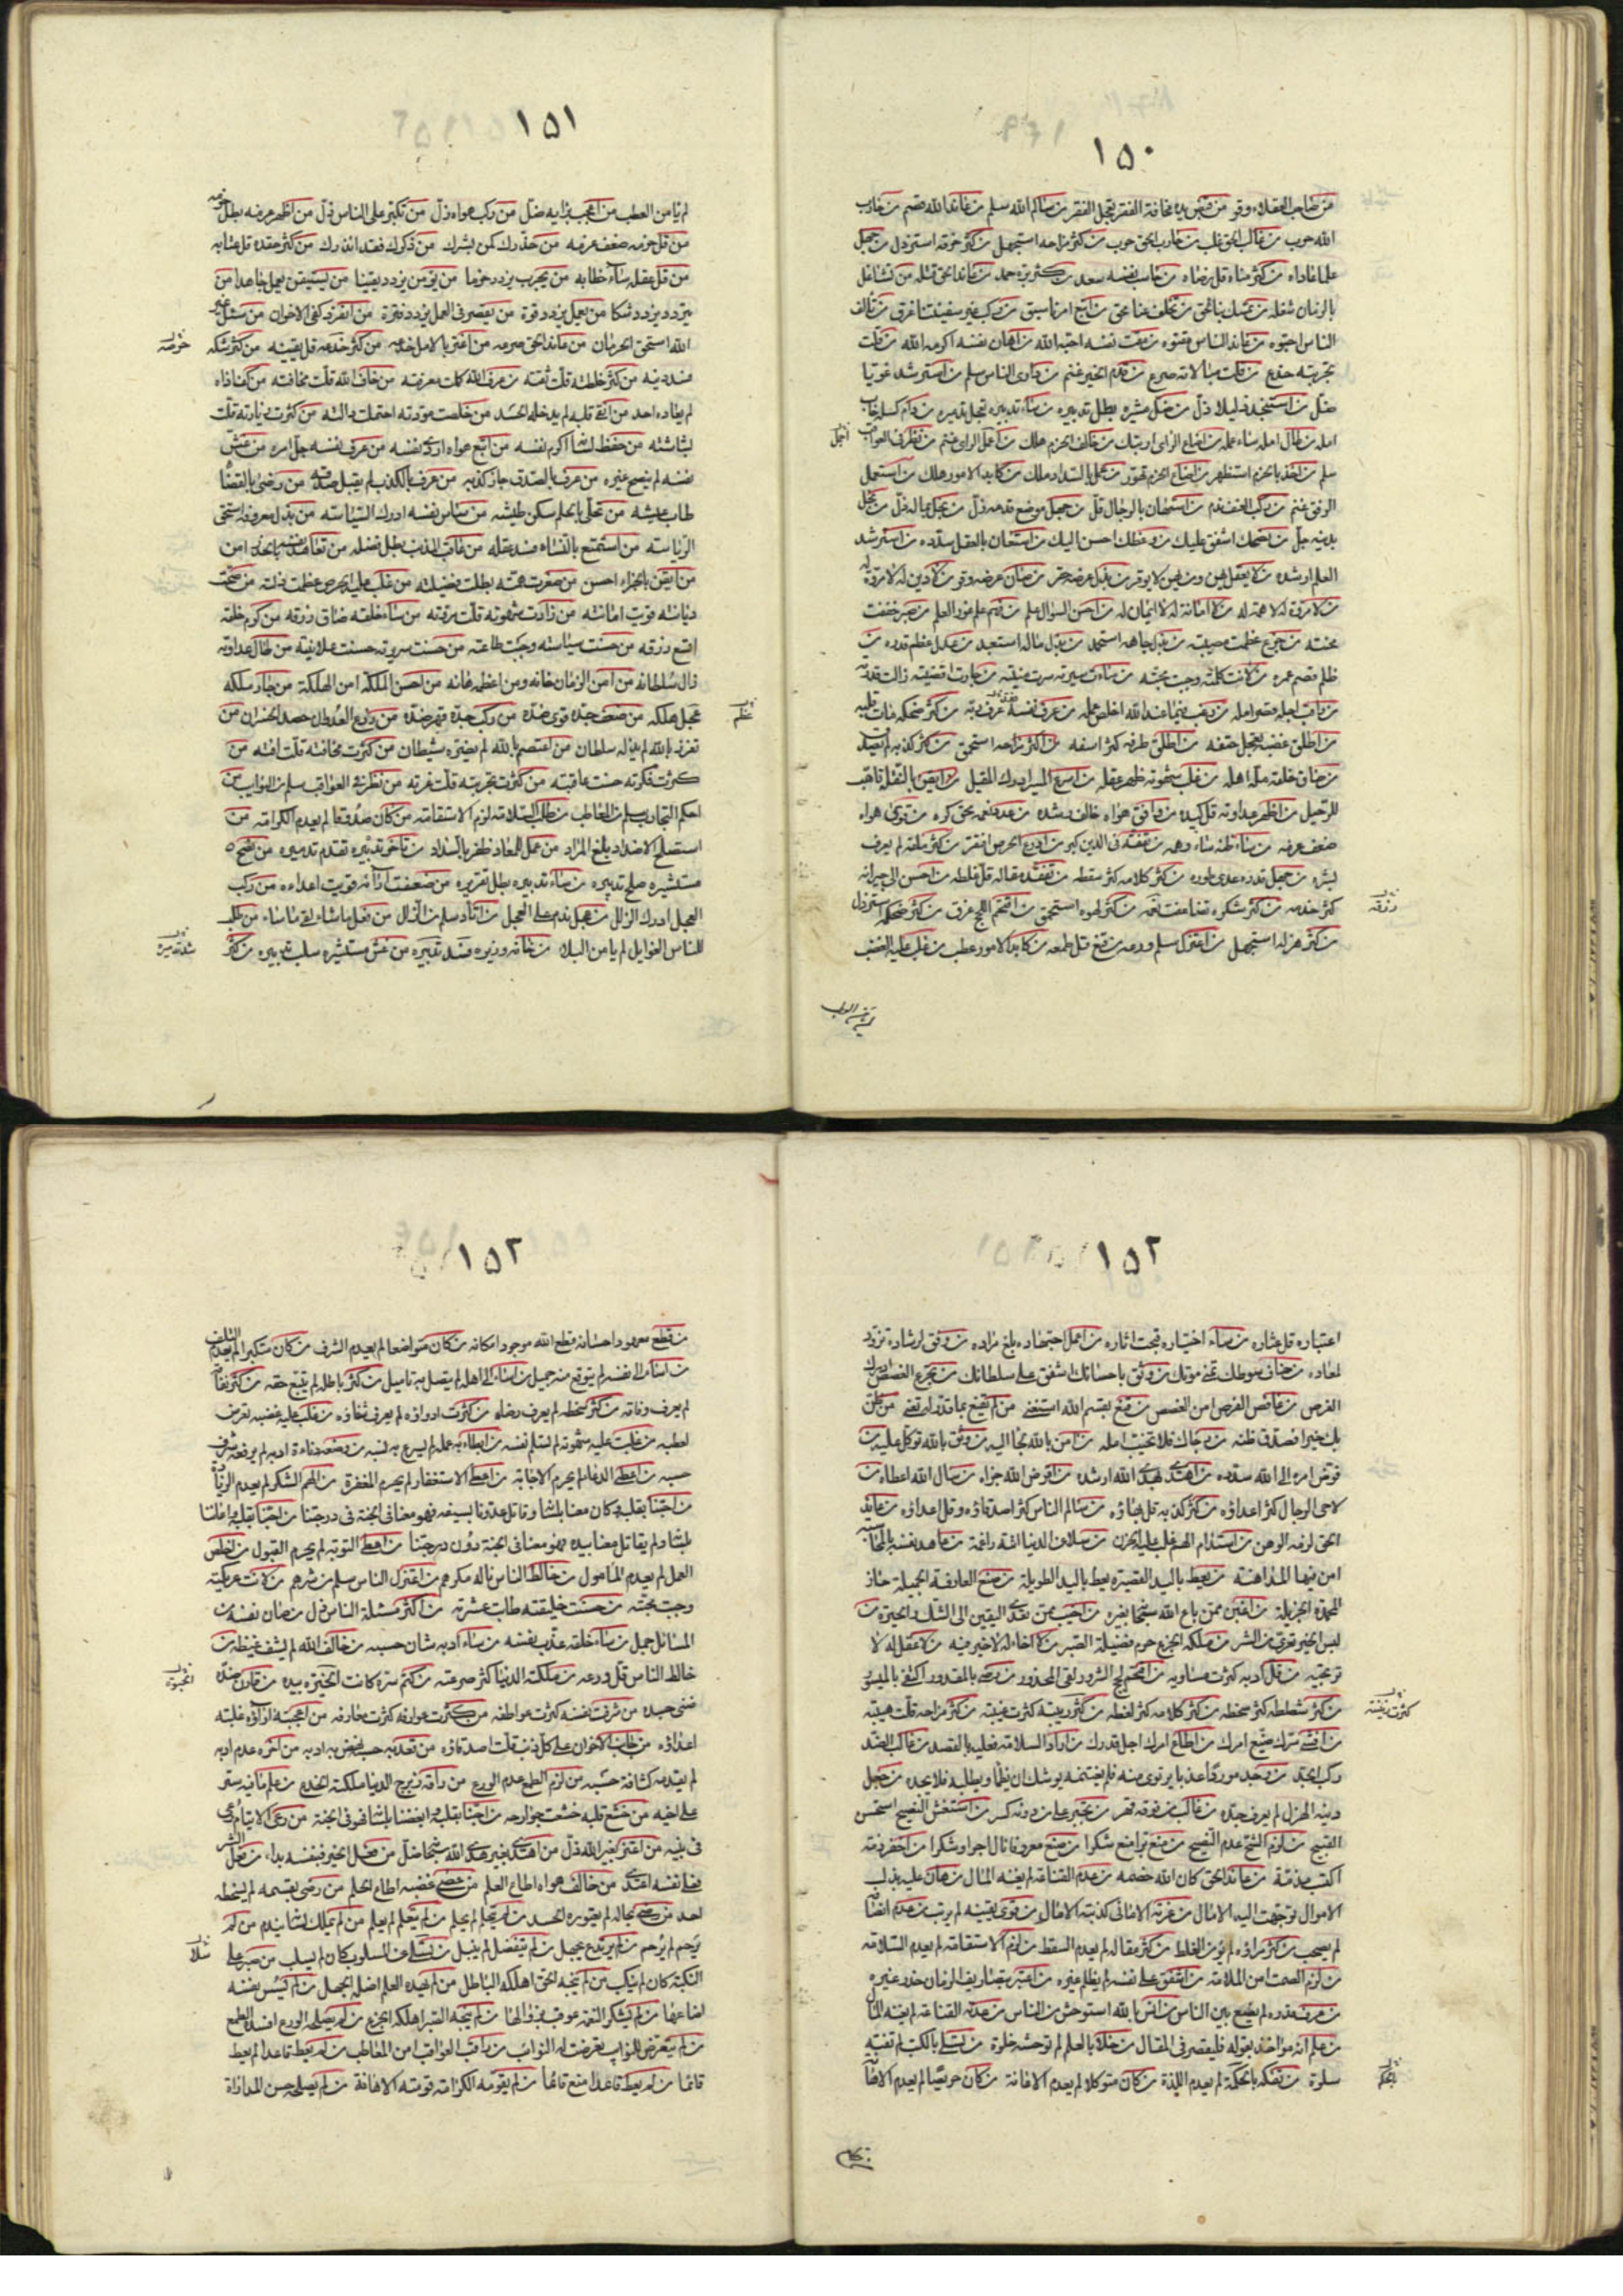 ١٥٠
من صاحب العقلاء وقر من قبض يده مخافة الفقر تعجل الفقر من سالم الله سلم من عاند الله قصم من حارب
الله حرب من غالب الحق غلب من حارب الحق حرب من كثر مزاحه استجهل من كثر خرقه استرذل من جهل
علما عاداه من كثر مناه قل رضاه من حاسب نفسه سعد من كثر بره حمد من عاند الحق قتله من تشاغل
بالزمان شغله من تمسك بنا لحق من تخلف عنا محق من اتبع امرنا سبق من ركب غير سفينتنا غرق من تألف
الناس احبوه من عاند الناس مقتوه من مقت نفسه احبه الله من اهان نفسه اكرمه الله من قلت
تجربته خدع من قلت مبالاته صرع من قدم الخير غنم من دارى الناس سلم من استرشد غويا
ضل من استنجد ذليلا ذل من ضل مشيره بطل تدبيره من ساء تدبيره تعجل تدميره من دام كسله خاب
امله من طال امله ساء عمله من اضاع الراى ارتبك من خالف الحزم هلك من اعمل الراى غنم من نظر فى العواقب
سلم من اخذ بالحزم استظهر من اضاع الحزم تهور من عمل بالسداد ملك من كابد الامور هلك من استعمل
الرفق غنم من ركب العنف ندم من استهان بالرجال قل من جهل موضع قدمه زل من بخل بماله ذل من بخل
بدينه جل من نصحك اشفق عليك من وعظك احسن اليك من استعان بالعقل سدده من استرشد
العلم ارشده من لا يعقل يهن ومن يهن لا يوقر من بذل عرضه حقر من صان عرضه وقر من لا دين له لا مروة له
من لا مروة له لا همة له من لا امانة له لا ايمان له من احسن السؤال علم من فهم علم غور العلم من صبر خفت
محنته من جزع عظمت مصيبته من بذل جاهه استحمد من بذل ماله استعبد من عدل عظم قدره من
ظلم قصم عمره من لانت كلمته وجبت محبته من ساءت سيرته سرت منيته من جارت اقضيته زالت قدرته
من راقب اجله قصر امله من رغب فيما عند الله اخلص عمله من عرف نفسه عرف ربه من كثر ضحكه مات قلبه
من اطلق غضبه تعجل حتفه من اطلق طرفه كثر اسفه من اكثر مزاحه استحمق من كثر كذبه لم يصدق
من ضاق خلقه مله اهله من غلب شهوته ظهر عقله من اسرع المسير ادرك المقيل من ايقن بالنقلة تاهب
للرحيل من اظهر عداوته قل كيده من وافق هواه خالف رشده من عد نعمه محق كرمه من قوى هواه
ضعف عزمه من ساء ظنه ساء وهمه من تفقه فى الدين كبر من ادرع الحرص افتقر من كثر ملقه لم يعرف
بشره من جهل قدره عدى طوره من كثر كلامه كثر سقطه من تفقد مقاله قل غلطه من احسن الى جيرانه
كثر خدمه من كثر شكره تضاعفت نعمه من كثر لهوه استحمق من اقتحم اللجج غرق من كثر ضحكه استرذل
من كثر هزله استجهل من اعتزل سلم ورعه من قنع قل طمعه من كابد الامور عطب من غلب عليه الغضب
١٥١
لم يأمن العطب من اعجب برايه ضل من ركب هواه زل من تكبر على الناس ذل من اظهر عزمه بطل حزمه
من قل حزمه ضعف عزمه من حذرك كمن بشرك من ذكرك فقد انذرك من كثر حقده قل عتابه
من قل عقله ساء خطابه من يجرب يزدد حزما من يؤمن يزدد يقينا من يستيقن يعمل جاهدا من
يتردد يزدد شكا من يعمل يزدد قوة من يقصر فى العمل يزدد فترة من انفرد كفى الاخوان من سئل غير
الله استحق الحرمان من عاند الحق صرعه من اغتر بالامل خدعه من كثر خدعه قل يقينه من كثر شكه
فسد دينه من كثر خلطته قلت ثقته من عرف الله كملت معرفته من خاف الله قلت مخافته من كف اذاه
لم يعاده احد من اتقى قلبه لم يدخله الحسد من خلصت مودته احتملت دالته من كثرت زيارته قلت
بشاشته من حفظ لسانه اكرم نفسه من اتبع هواه اردى نفسه من عرف نفسه جل امره من غش
نفسه لم ينصح غيره من عرف بالصدق جاز كذبه من عرف بالكذب لم يقبل صدقه من رضى بالقضا
طاب عيشه من تحلى بالحلم سكن طيشه من ساس نفسه ادرك السياسة من بذل معروفه استحق
الرياسة من استمتع بالنساء فسد عقله من عاقب المذنب بطل فضله من تعاهد نفسه بالحذر امن
من ايقن بالجزاء احسن من صغرت همته بطلت فضيلته من غلب عليه الحرص عظمت ذلته من صحت
ديانته قويت امانته من زادت شهوته قلت مروته من ساء خلقه ضاق رزقه من كرم خلقه
اتسع رزقه من حسنت سياسته وجبت طاعته من حسنت سريرته حسنت علانيته من طال عداوته
زال سلطانه من امن الزمان خانه ومن اعظمه هانه من احسن الملكة امن الهلكة من جار ملكه
عجل هلكه من ضعف جده قوى ضده من ركب جده قهر ضده من زرع العدوان حصد الخسران من
تعزز بالله لم يذله سلطان من اعتصم بالله لم يضره شيطان من كثرت مخافته قلت افته من
كثرت فكرته حسنت عاقبته من كثرت تجربته قلت غرته من نظر فى العواقب سلم من النوايب من
احكم التجارب سلم من المعاطب من طلب السلامة لزم الاستقامة من كان صدوقا لم يعدم الكرامة من
استصلح الاضداد بلغ المراد من عمل للمعاد ظفر بالسداد من تأخر تدبيره تقدم تدميره من نصح
مستشيره صلح تدبيره من ساء تدبيره بطل تقريره من ضعفت آراؤه قويت اعداءه من ركب
العجل ادرك الزلل من عجل ندم على العجل من اتأد سلم من الزلل من فعل ما شاء لقى ما ساء من طلب
للناس الغوايل لم يأمن البلاء من خانه وزيره فسد تدبيره من غش مستشيره سلب تدبيره من كثر
١٥٢
اعتباره قل عثاره من ساء اختياره قبحت اثاره من اعمل اجتهاده بلغ مراده من وفق لرشاده تزود
لمعاده من خاف سوطك تمنى موتك من وثق باحسانك اشفق على سلطانك من تجرع الغصص ادرك
الفرص من غافص الفرص امن الغصص من قنع بقسم الله استغنى من لم يقنع بما قدر له تعنى من ظن
بك خيرا فصدق ظنه من رجاك فلا تخيب امله من امن بالله لجأ اليه من وثق بالله توكل عليه من
فوض امره الى الله سدده من اهتدى بهدى الله ارشده من اقرض الله جزاه من سال الله اعطاه من
لاحى الرجال كثر اعداؤه من كثر كذبه قل بهاؤه من سالم الناس كثر اصدقاؤه وقل اعداؤه من عاند
الحق لزمه الوهن من استدام الهم غلب عليه الحزن من سلا عن الدنيا اتته راغمة من عاهد نفسه بالمحاسبة
امن فيها المداهنة من يعط باليد القصيرة يعط باليد الطويلة من صنع العارفة الجميلة حاز
المحمدة الجزيلة من اغبن ممن باع الله سبحانه بغيره من اخيب ممن تعدى اليقين الى الشك والحيرة من
لبس الخير تعرى من الشر من ملكه الجزع حرم فضيلة الصبر من لا اخاء له لا خير فيه من لا عقل له لا
ترتجيه من قل ادبه كثرت مساويه من اقتحم لجج الشرور لقى المحذور من رضى بالمقدور اكتفى بالميسور
من كثر شططه كثر سخطه من كثر كلامه كثر لغطه من كثر ريبته كثرت غيبته من كثر مزاحه قلت هيبته
من افشى سرك ضيع امرك من اطاع امرك اجل قدرك من اراد السلامة فعليه بالقصد من غالب الضد
ركب الجد من وجد موردا عذبا يرتوى منه فلم يغتنمه يوشك ان يظما ويطلبه فلا يجده من جعل
دينه الهزل لم يعرف جده من غالب من فوقه قهر من تجبر على من دونه كسر من استغش النصيح استحسن
القبيح من لزم الشح عدم النصيح من منع برا منع شكرا من صنع معروفا نال اجرا وشكرا من اخفر ذمة
اكتسب مذمة من عاند الحق كان الله خصمه من عدم القناعة لم يغنه المال من هان عليه بذل
الاموال توجهت اليه الامال من غرته الامانى كذبته الامال من قوى يقينه لم يرتب من عدم انصافه
لم يصحب من كثر مراؤه لم يامن الغلط من كثر مقاله لم يعدم السقط من لزم الاستقامة لم يعدم السلامة
من لزم الصمت امن الملامة من اشفق على نفسه لم يظلم غيره من اعتبر بتصاريف الزمان حذر غيره
من عرف قدره لم يضع بين الناس من انس بالله استوحش من الناس من عدته القناعة لم يغنه المال
من علم انه مواخذ بقوله فليقصر فى المقال من خلا بالعلم لم توحشه خلوة من تسلى بالكتب لم تفته
سلوة من تفكه بالحكمة لم يعدم اللذة من كان متوكلا لم يعدم الاعانة من كان حريصا لم يعدم الاهانة
١٥٣
من قطع معهود احسانه قطع الله موجود امكانه من كان متواضعا لم يعدم الشرف من كان متكبرا لم يعدم التلف
من اساء الى نفسه لم يتوقع منه جميل من اساء الى اهله لم يتصل به تاميل من كثر باطله لم يتبع حقه من كثر نفاقه
لم يعرف وفاقه من كثر سخطه لم يعرف رضاه من كثرت ادواؤه لم يعرف شفاؤه من غلب عليه غضبه تعرض
لعطبه من غلبت عليه شهوته لم تسلم نفسه من ابطاء به عمله لم يسرع به نسبه من وضعه دناءة ادبه لم يرفعه شرف
حسبه من اعطى الدعا لم يحرم الاجابة من اعطى الاستغفار لم يحرم المغفرة من الهم الشكر لم يعدم الزيادة
من احبنا بقلبه وكان معنا بلسانه وقاتل عدونا بسيفه فهو معنا فى الجنة فى درجتنا من احبنا بقلبه واعاننا
بلسانه ولم يقاتل معنا بيده فهو معنا فى الجنة دون درجتنا من اعطى التوبة لم يحرم القبول من اخلص
العمل لم يعدم المأمول من خالط الناس ناله مكرهم من اعتزل الناس سلم من شرهم من لانت عريكته
وجبت محبته من حسنت خليقته طابت عشرته من اكثر مسئلة الناس ذل من صان نفسه عن
المسائل جل من ساء خلقه عذب نفسه من ساء ادبه شان حسبه من خالف الله لم يشف غيظه من
خالط الناس قل ورعه من ملكته الدنيا كثر صرعته من كتم سره كانت الخيرة بيده من قارن ضده
ضنى جسده من شرفت نفسه كثرت عواطفه من كثرت عوارفه كثرت معارفه من اعجبته اراؤه غلبته
اعداؤه من عاتب الاخوان على كل ذنب قلت اصدقاؤه من قعد به حسبه نهض به ادبه من اخره عدم ادبه
لم يقدمه كثافة حسبه من لزم الطمع عدم الورع من راقه زبرج الدنيا ملكته الخدع من علم ما فيه ستر
على اخيه من خشع قلبه خشعت جوارحه من احبنا بقلبه وابغضنا بلسانه فهو فى الجنة من رعى الايتام رعى
فى بنيه من اعتز بغير الله ذل من اهتدى بغير هدى الله سبحانه ضل من فعل الخير فبنفسه بدا من فعل الشر
فعلى نفسه اعتدى من خالف هواه اطاع العلم من عصى غضبه اطاع الحلم من رضى بقسمه لم يسخطه
احد من رضى بحاله لم يعتوره الحسد من لم يتحلم لم يحلم من لم يتعلم لم يعلم من لم يملك لسانه يندم من لم
يرحم لم يرحم من لم يرتدع يجهل من لم يتفضل لم ينبل من تسلى عن المسلوب كان لم يسلب من صبر على
النكبة كان لم ينكب من لم ينجه الحق اهلكه الباطل من لم يهده العلم اضله الجهل من لم يسس نفسه
اضاعها من لم يشكر النعمة عوقب بزوالها من لم ينجه الصبر اهلكه الجزع من لم يصلحه الورع افسده الطمع
من لم يتعرض للنوايب تعرضت له النوائب من راقب العواقب امن المعاطب من لم يعط قاعدا لم يعط
قائما من لم يعط قاعدا منع قائما من لم يقومه الكرامة قومته الاهانة من لم يصلحه حسن المداراة